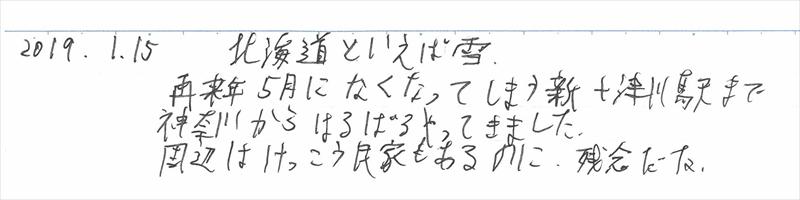 2019.1.15 北海道といえば雪.
再来年5月になくなってしまう新十津川駅まで
神奈川からはるばるやってきました.
周辺はけっこう民家もあるのに.残念だーな.